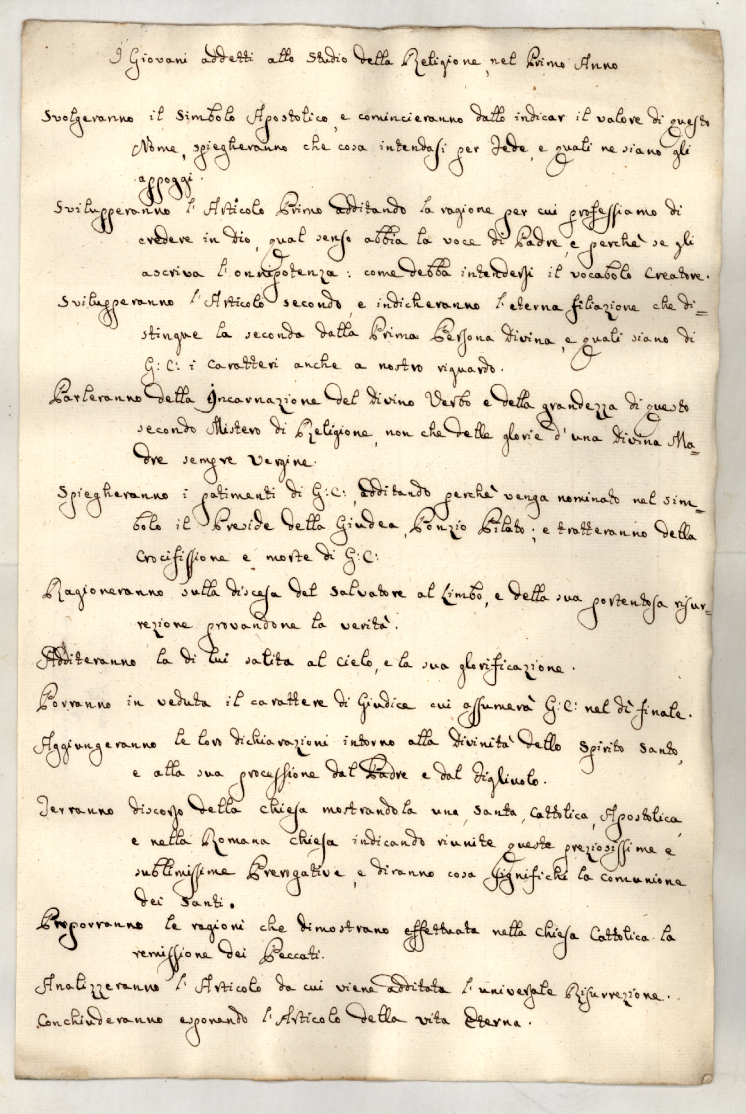 I Giovani addetti allo Studio della Religione, nel Primo Anno
Svolgeranno il Simbolo Apostolico, e comincieranno dallo indicar il valore di questo
Nome, spiegheranno che cosa intendasi per Fede, e quali ne siano gli
appoggi.
Svilupperanno l'Articolo Primo additando la ragione per cui professiamo di
credere in Dio, qual senso abbia la voce di Padre, e perchè se gli
ascriva l'onnipotenza: come debba intendersi il vocabolo Creatore.
Svilupperanno l'Articolo secondo, e indicheranno l'eterna filiazione che di=
stingue la seconda dalla Prima Persona Divina, e quali siano di
G: C: i caratteri anche a nostro riguardo.
Parleranno della Incarnazione del Divino Verbo e della grandezza di questo
secondo Mistero di Religione, non che delle glorie d'una Divina Ma=
dre sempre Vergine.
Spiegheranno i patimenti di G: C:, additando perchè venga nominato nel sim=
bolo il Preside della Giudea, Ponzio Pilato; e tratteranno della
Crocifissione e morte di G: C:
Ragioneranno sulla discesa del Salvatore al Limbo, e della sua portentosa risur=
rezione provandone la verità.
Additeranno la di lui salita al Cielo, e la sua glorificazione.
Porranno in veduta il carattere di Giudice cui assumerà G: C: nel dì finale.
Aggiungeranno le loro dichiarazioni intorno alla Divinità dello Spirito Santo,
e alla sua processione dal Padre e dal Figliuolo.
Terranno discorso della Chiesa mostrandola una, Santa, Cattolica, Apostolica,
e nella Romana Chiesa indicando riunite queste preziosissime e
sublimissime Prerogative, e diranno cosa significhi la comunione
dei Santi.
Proporranno le ragioni che dimostrano effettuata nella Chiesa Cattolica la
remissione dei Peccati.
Analizzeranno l'Articolo da cui viene additata l'universale Risurrezione.
Conchiuderanno esponendo l'Articolo della vita Eterna.